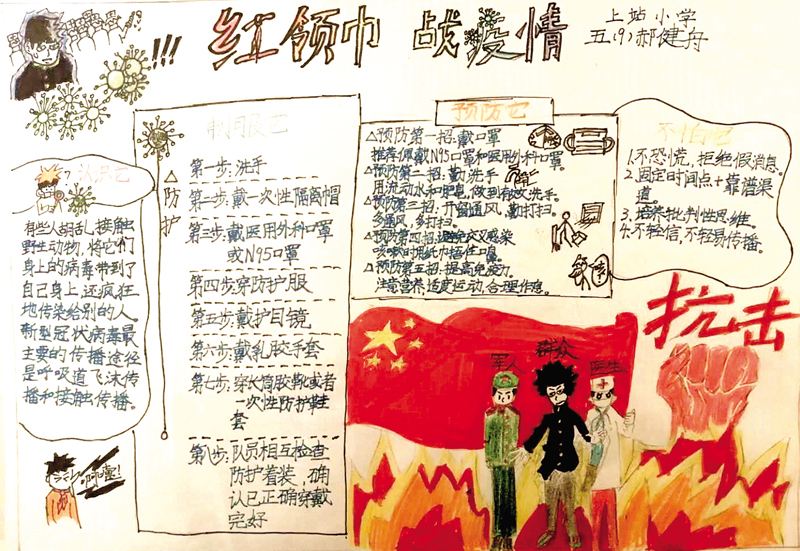 !!!
红领巾 战疫情
上站小学
五(9)郝健舟
认识它
有些人胡乱接触
野生动物,将它们
身上的病毒带到了
自己身上,还疯狂
地传染给别的人。
新型冠状病毒最
主要的传播途径
是呼吸道飞沫传
播和接触传播。
啊嚏!
制服它
△防护
第一步:洗手
第二步:戴一次性隔离帽
第三步:戴医用外科口罩
或N95口罩
第四步:穿防护服
第五步:戴护目镜
第六步:戴乳胶手套
第七步:穿长筒胶靴或者
一次性防护鞋
套
第八步:队员相互检查
防护着装,确
认已正确穿戴
完好
预防它
△预防第一招:戴口罩
推荐佩戴N95口罩和医用外科口罩。
△预防第二招:勤洗手
用流动水和肥皂,做到有效洗手。
△预防第三招:开窗通风,勤打扫。
多通风,多打扫。
△预防第四招:避免交叉感染
咳嗽时用纸巾捂住口鼻。
△预防第五招:提高免疫力。
注意营养,适度运动,合理作息。
不怕它
1.不恐慌,拒绝假消息。
2.固定时间点+靠谱渠
道。
3.培养批判性思维。
4.不轻信,不轻易传播。
抗击
军人
群众
医生